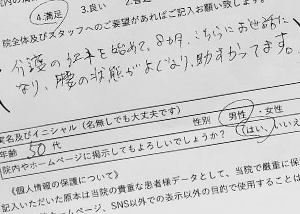 4.満足 3.良い 2.
院全体及びスタッフへのご要望があればご記入お願い致します。
介護の仕事を始めて、8か月、こちらにお世話に
なり、腰の状態がよくなり、助かってます。
実名及びイニシャル(名無しでも大丈夫です)
年齢 50代 性別 男性・女性
院内やホームページに掲示してもよろしいでしょうか? はい、いいえ
《個人情報の保護について》
記入いただいた原本は当院の貴重な患者様データとして、当院で厳重に保
ホームページ、SNS以外での表示以外の目的で使用することは